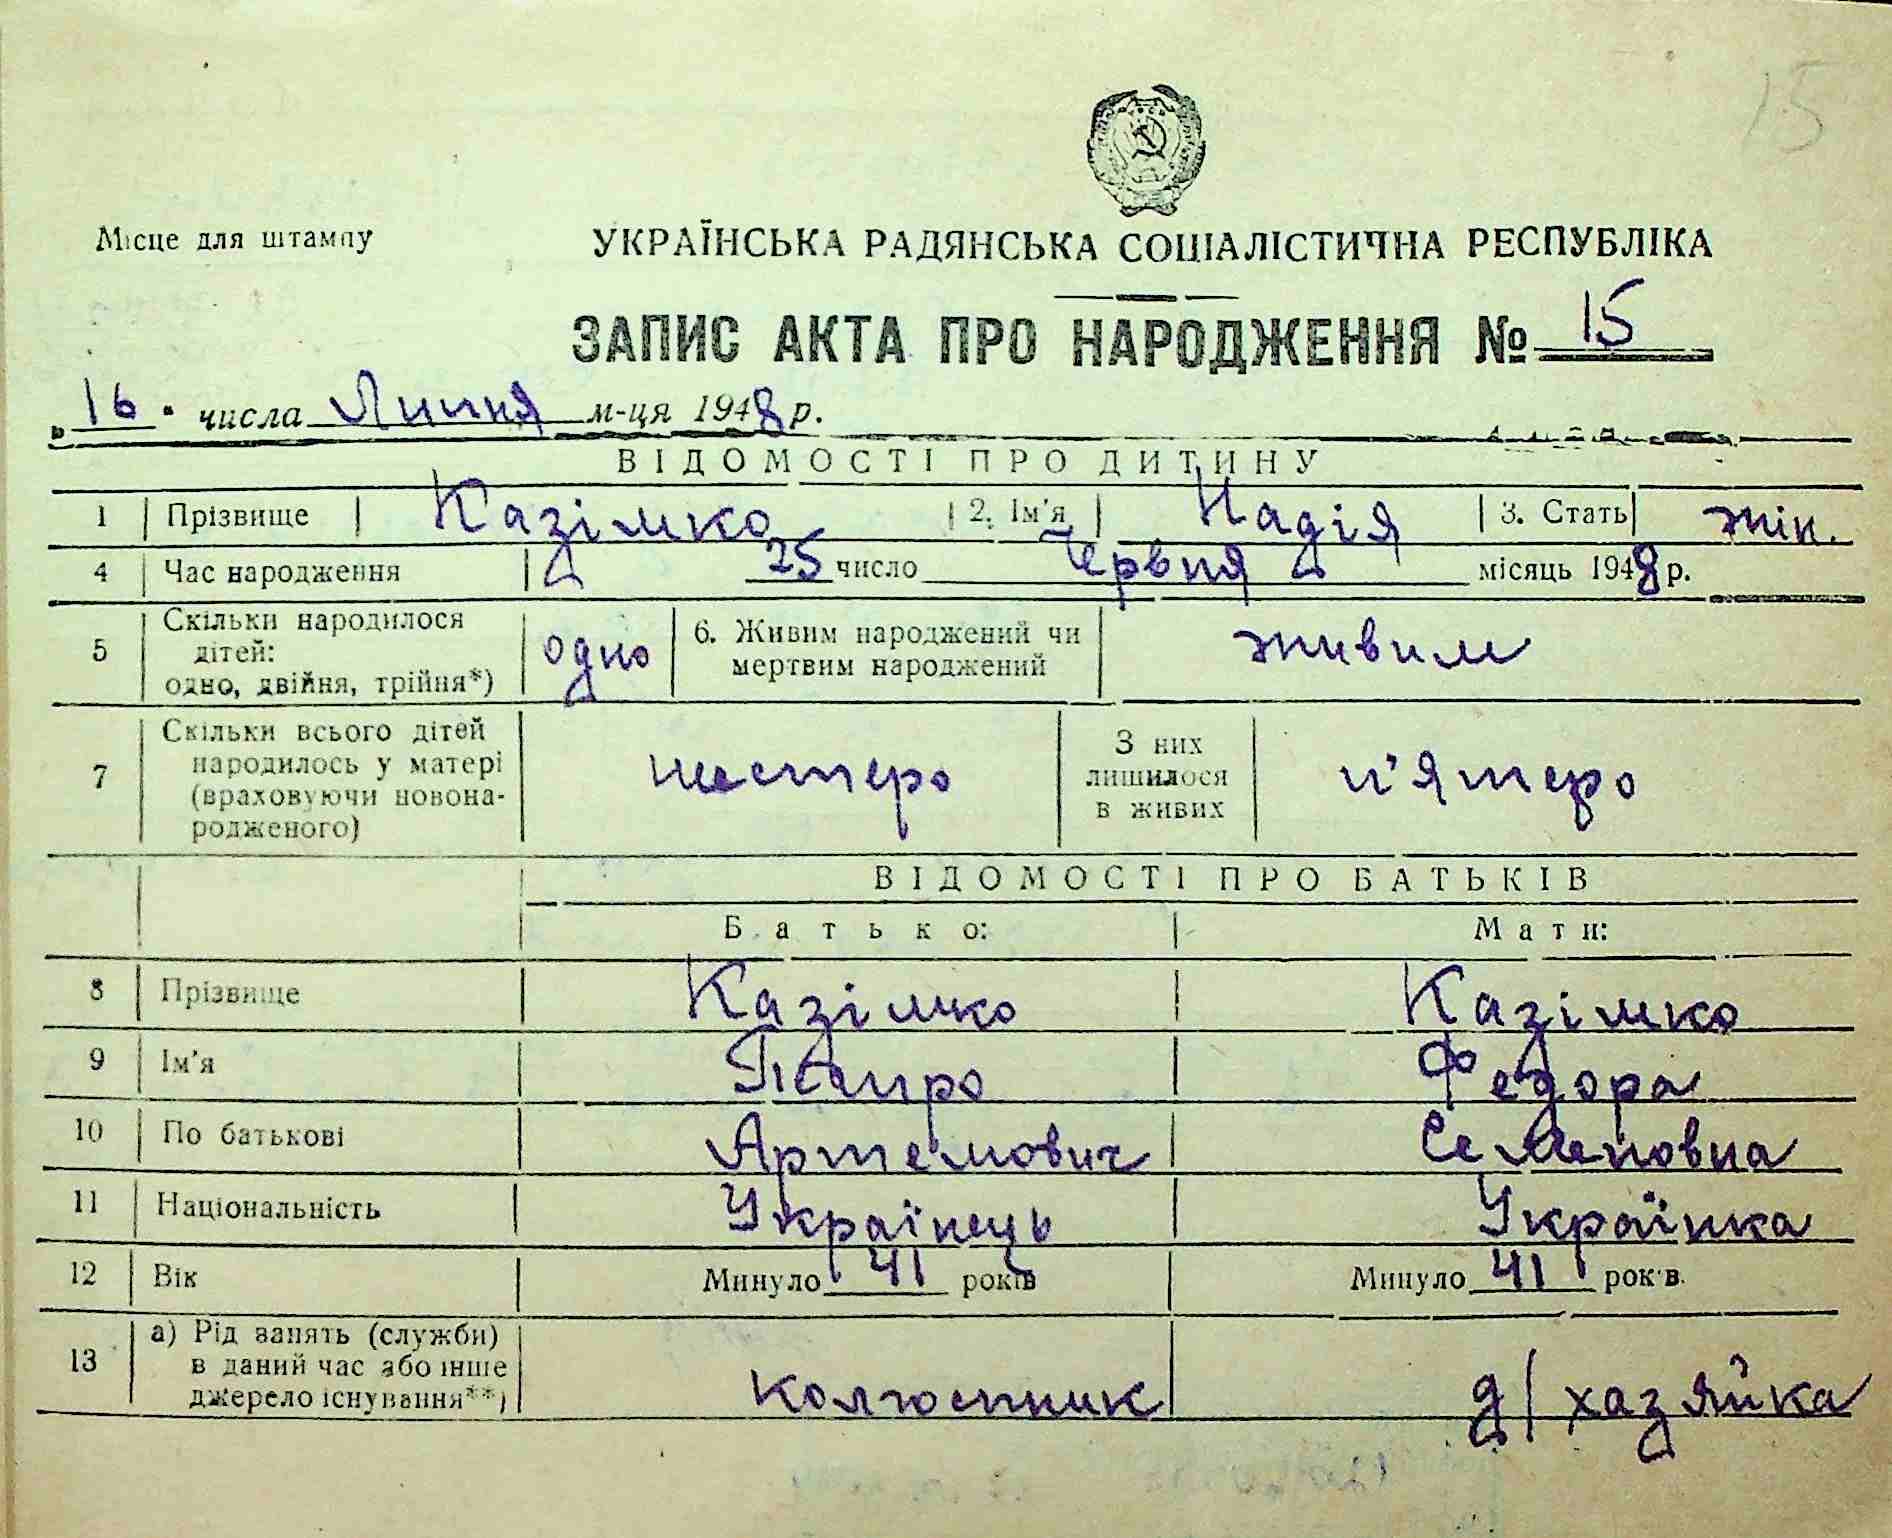 15
Місце для штампу
УКРАЇНСЬКА РАДЯНСЬКА СОЦІАЛІСТИЧНА РЕСПУБЛІКА
ЗАПИС АКТА ПРО НАРОДЖЕННЯ № 15
„16" числа Липня м-ця 1948 р.
ВІДОМОСТІ ПРО ДИТИНУ
1 Прізвище Казімко 2. Ім'я Надія 3. Стать жін.
4 Час народження 25 число Червня місяць 1948 р.
5 Скільки народилося дітей: одно, двійня, трійня*) одно 6. Живим народжений чи мертвим народжений живим
7 Скільки всього дітей народилось у матері (враховуючи новонародженого) шестеро З них лишилося в живих п'ятеро
ВІДОМОСТІ ПРО БАТЬКІВ
Батько: Мати:
8 Прізвище Казімко Казімко
9 Ім'я Петро Федора
10 По батькові Артемович Семеновна
11 Національність Українець Українка
12 Вік Минуло 41 років Минуло 41 років.
13 а) Рід занять (служби) в даний час або інше джерело існування**) колгоспник д/хазяйка